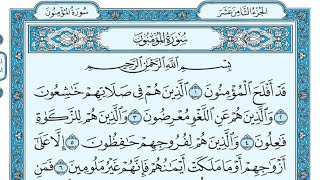 سُورَةُ المُؤۡمِنُونَ
الجُزۡءُ الثَّامِنَ عَشَرَ
سُورَةُ المُؤۡمِنُونَ
بِسۡمِ ٱللَّهِ ٱلرَّحۡمَٰنِ ٱلرَّحِيمِ
قَدۡ أَفۡلَحَ ٱلۡمُؤۡمِنُونَ ١ ٱلَّذِينَ هُمۡ فِي صَلَاتِهِمۡ خَٰشِعُونَ
٢ وَٱلَّذِينَ هُمۡ عَنِ ٱللَّغۡوِ مُعۡرِضُونَ ٣ وَٱلَّذِينَ هُمۡ لِلزَّكَوٰةِ
فَٰعِلُونَ ٤ وَٱلَّذِينَ هُمۡ لِفُرُوجِهِمۡ حَٰفِظُونَ ٥ إِلَّا عَلَىٰٓ
أَزۡوَٰجِهِمۡ أَوۡ مَا مَلَكَتۡ أَيۡمَٰنُهُمۡ فَإِنَّهُمۡ غَيۡرُ مَلُومِينَ ٦ فَمَنِ